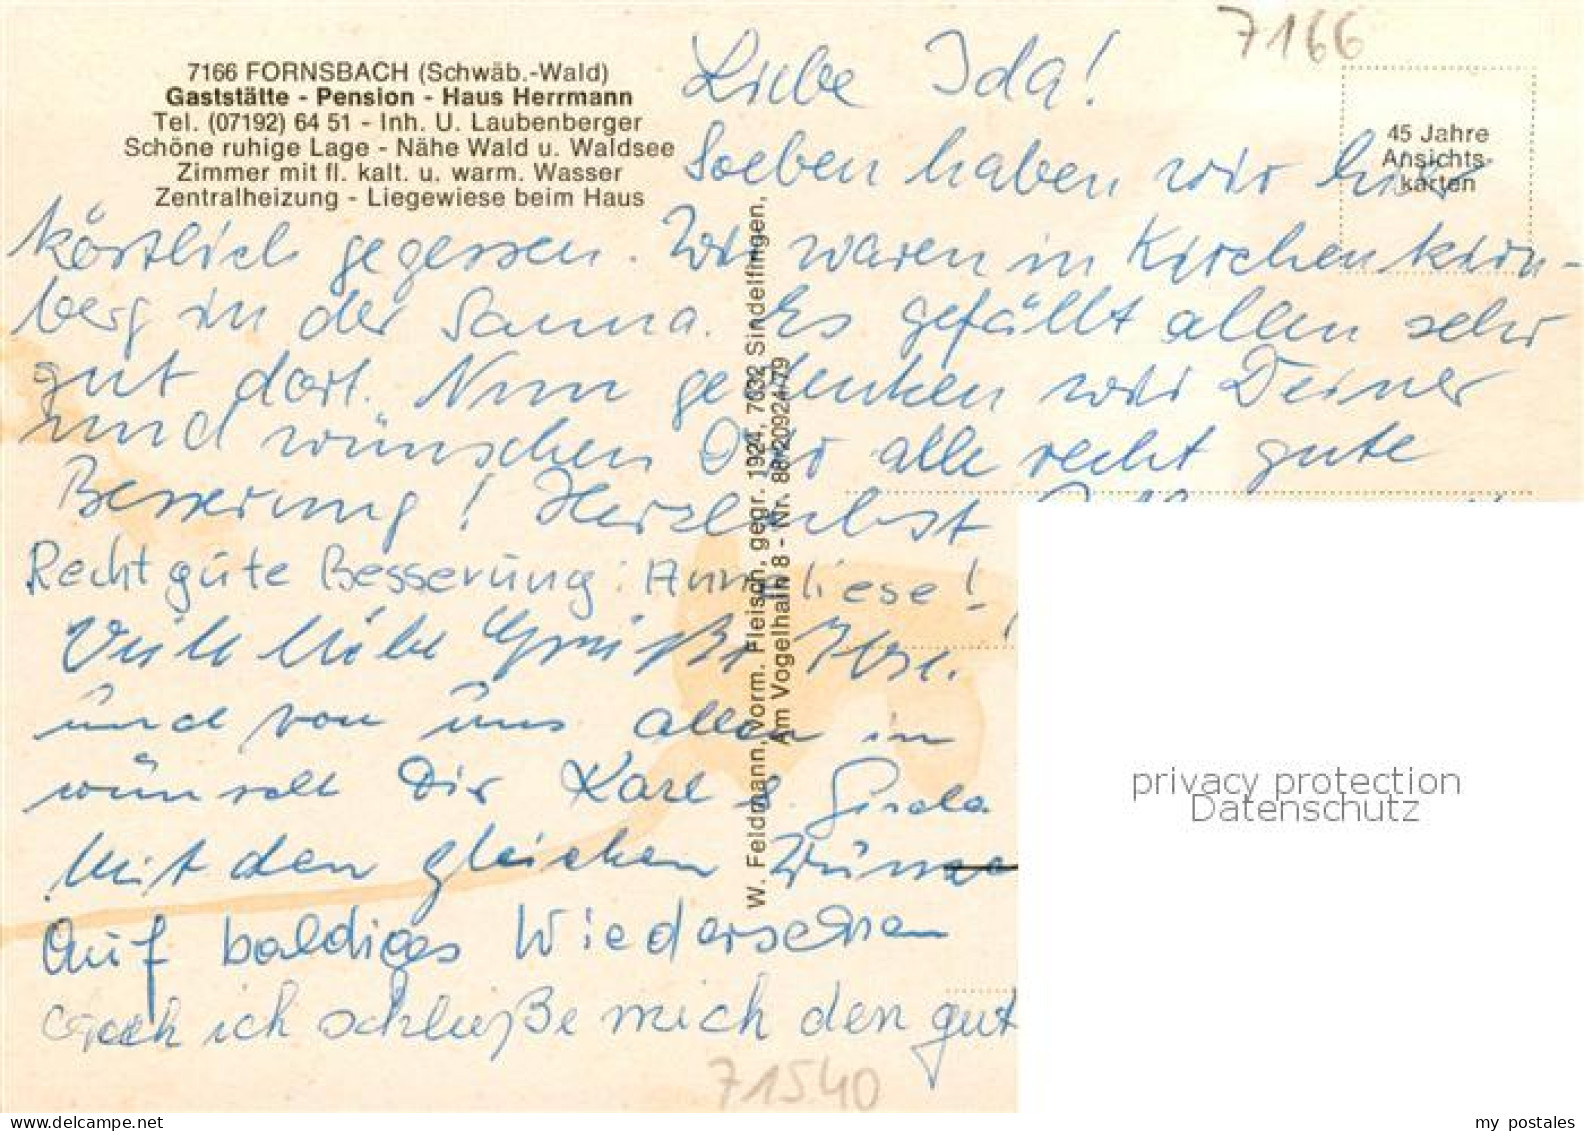 7166
7166 FORNSBACH (Schwäb.-Wald)
Gaststätte - Pension - Haus Herrmann
Tel. (07192) 64 51 - Inh. U. Laubenberger
Schöne ruhige Lage - Nähe Wald u. Waldsee
Zimmer mit fl. kalt. u. warm. Wasser
Zentralheizung - Liegewiese beim Haus
45 Jahre
Ansichts-
karten
Liebe Ida!
Soeben haben wir hier
köstlich gegessen. Wir waren in Kirchenkirn-
berg in der Sauna. Es gefällt allen sehr
gut dort. Nun gedenken wir Deiner
und wünschen Dir alle recht gute
Besserung! Herzlichst
Recht gute Besserung: Anneliese!
Viele liebe Grüße Ilse.
und von uns allen in
wünscht Dir Karl u. Gisela
Mit den gleichen
Auf baldiges Wiedersehen
auch ich schließe mich den gut
W. Feldmann, vorm. Fleisch, gegr. 1924, 7032 Sindelfingen,
Am Vogelhain 8 - Nr. 88/20924/79
privacy protection
Datenschutz
71540
my postales